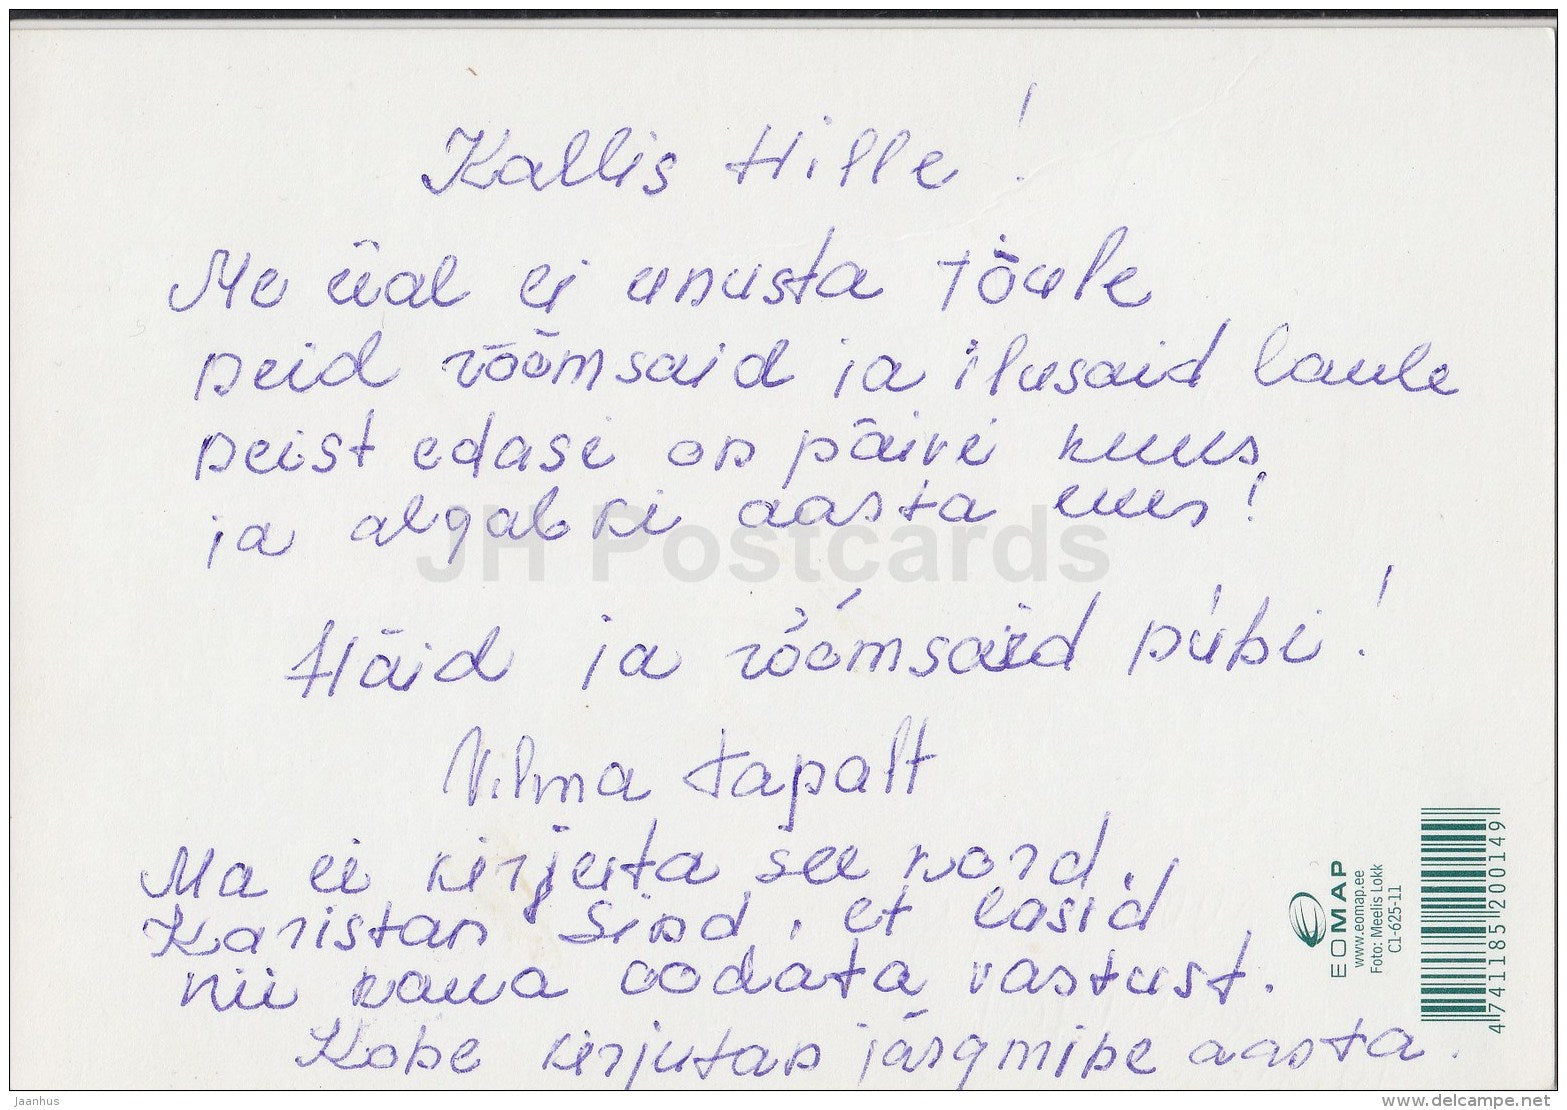 Kallis Hille!
Me iial ei unusta jõule
neid rõõmsaid ja ilusaid laule
neist edasi on päivi kuus
ja algabki aasta uus!
Häid ja rõõmsaid pühi!
Vilma Tapalt
Ma ei kirjuta see kord.
Karistan Sind, et lasid
nii kaua oodata vastust.
Kohe kirjutan järgmine aasta.
JH Postcards
EOMAP
www.eomap.ee
Foto: Meelis Lokk
C1-625-11
4 741185 200149
Jaanhus
www.delcampe.net